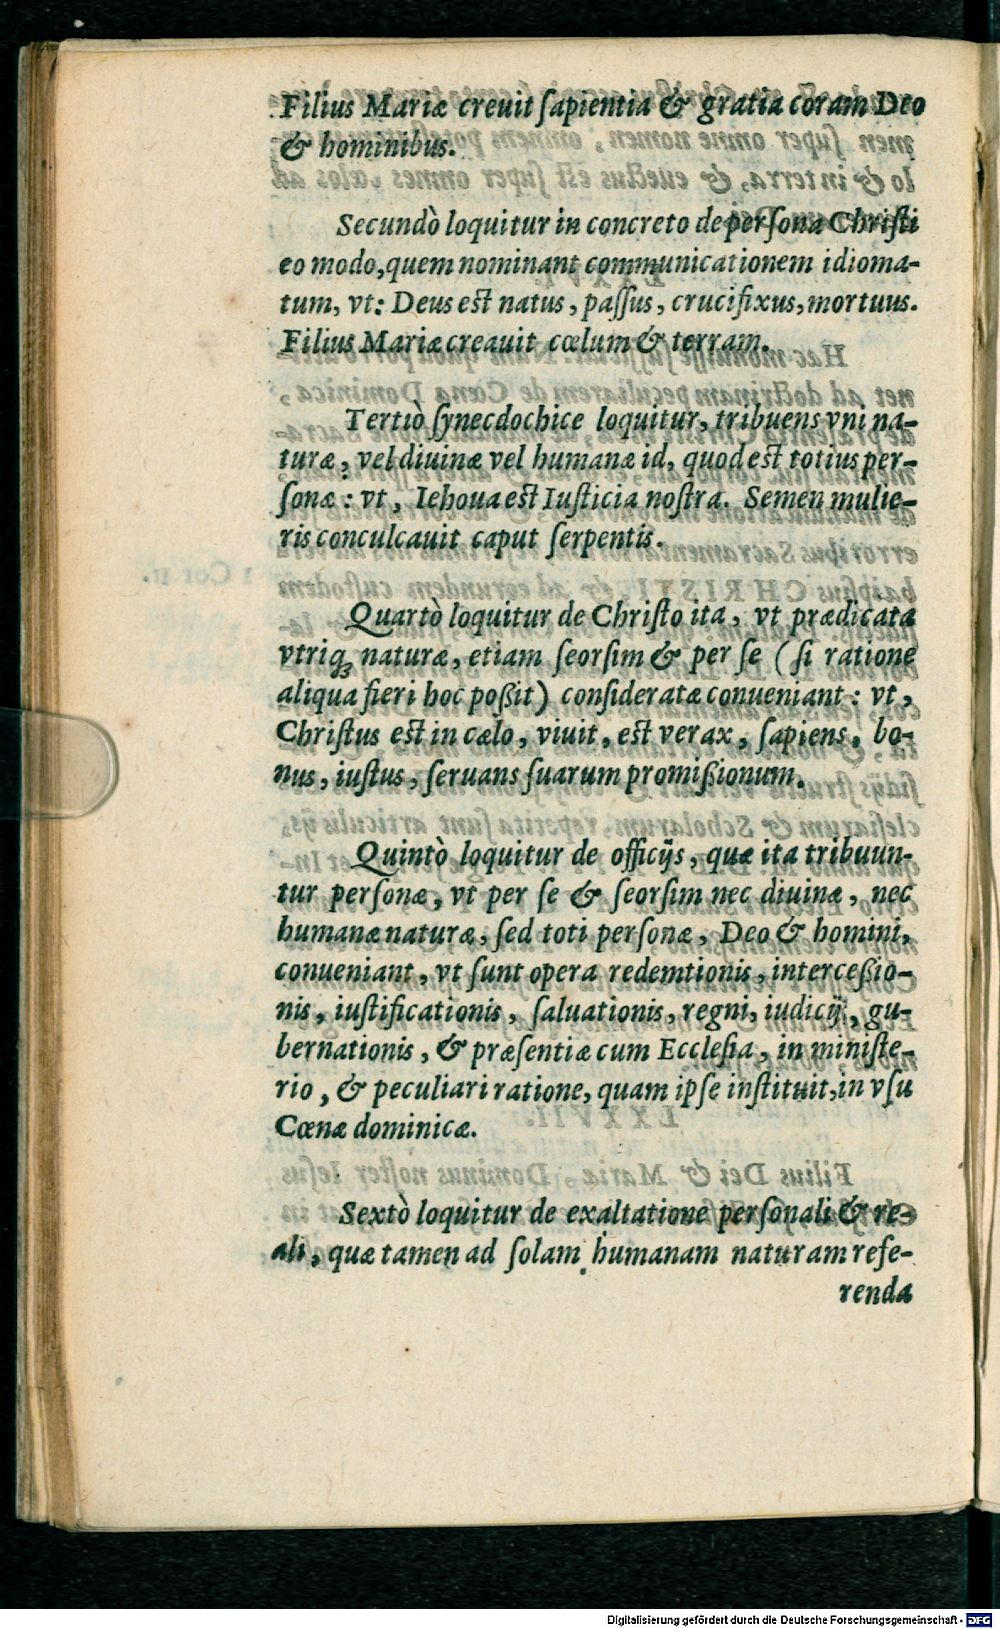 Filius Mariæ creuit ſapientia & gratia coram Deo
& hominibus.
Secundò loquitur in concreto de perſona Chriſti
eo modo, quem nominant communicationem idioma-
tum, vt: Deus est natus, paſſus, crucifixus, mortuus.
Filius Mariæ creauit cœlum & terram.
Tertiò ſynecdochice loquitur, tribuens vni na-
turæ, vel diuinæ vel humanæ id, quod est totius per-
ſonæ: vt, Iehoua est Iuſticia noſtra. Semen mulie-
ris conculcauit caput ſerpentis.
Quartò loquitur de Chriſto ita, vt prædicata
vtriq; naturæ, etiam ſeorſim & per ſe (ſi ratione
aliqua fieri hoc poßit) conſideratæ conueniant: vt,
Chriſtus est in cælo, viuit, est verax, ſapiens, bo-
nus, iuſtus, ſeruans ſuarum promißionum.
Quintò loquitur de officijs, quæ ita tribuun-
tur perſonæ, vt per ſe & ſeorſim nec diuinæ, nec
humanæ naturæ, ſed toti perſonæ, Deo & homini,
conueniant, vt ſunt opera redemtionis, interceßio-
nis, iuſtificationis, ſaluationis, regni, iudicij, gu-
bernationis, & præſentiæ cum Eccleſia, in miniſte-
rio, & peculiari ratione, quam ipſe inſtituit, in vſu
Cœnæ dominicæ.
Sextò loquitur de exaltatione perſonali & re-
ali, quæ tamen ad ſolam humanam naturam refe-
renda
Digitalisierung gefördert durch die Deutsche Forschungsgemeinschaft - DFG